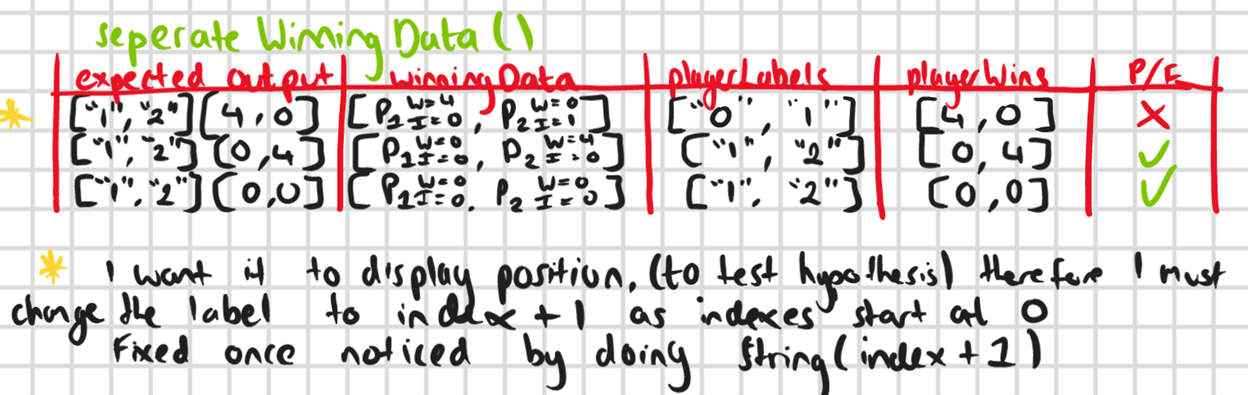 seperate Winning Data ()
expected output winningData playerLabels playerWins P/E
* ["1", "2"] [4, 0] [P1 W=4 I=0, P2 W=0 I=1] ["0", "1"] [4, 0] ✗
["1", "2"] [0, 4] [P1 W=0 I=0, P2 W=4 I=0] ["1", "2"] [0, 4] ✓
["1", "2"] [0,0] [P1 W=0 I=0, P2 W=0 I=0] ["1", "2"] [0,0] ✓
* I want it to display position, (to test hypothesis) therefore I must
change the label to index + 1 as indexes start at 0
Fixed once noticed by doing String(index + 1)